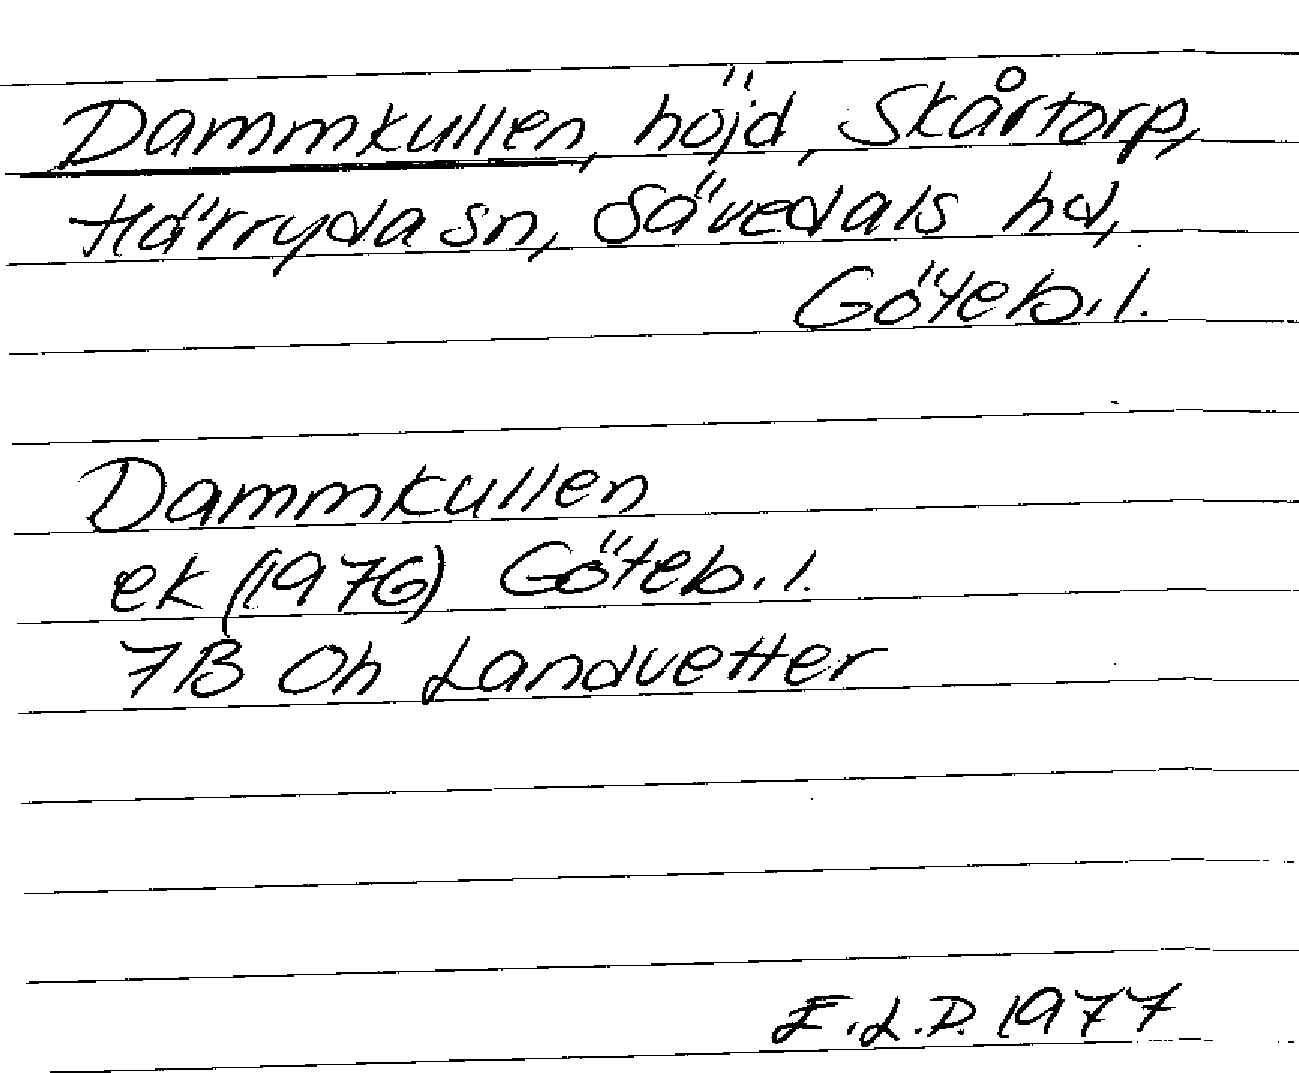 Dammkullen, höjd, Skårtorp,
Härryda sn, Sävedals hd,
Göteb. l.
Dammkullen
ek (1976) Göteb. l.
7B 0h Landvetter
E.L.D. 1977